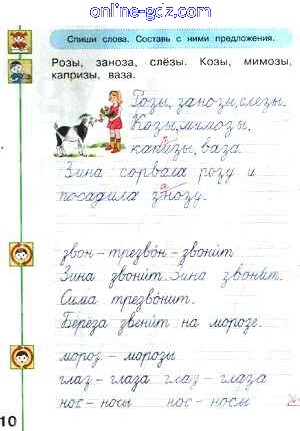 online-gdz.com
Спиши слова. Составь с ними предложения.
Розы, заноза, слёзы. Козы, мимозы,
капризы, ваза.
Розы, занози, слезы.
Козы, мимозы,
капизы, ваза.
Зина сорвала розу и
посадила знозу.
звон – трезвон – звонит
Зина звонит. Зина звонит.
Сима трезвонит.
Берёза звенит на морозе.
мороз – морозы
глаз – глаза глаз – глаза
нос – носы нос – носы
10